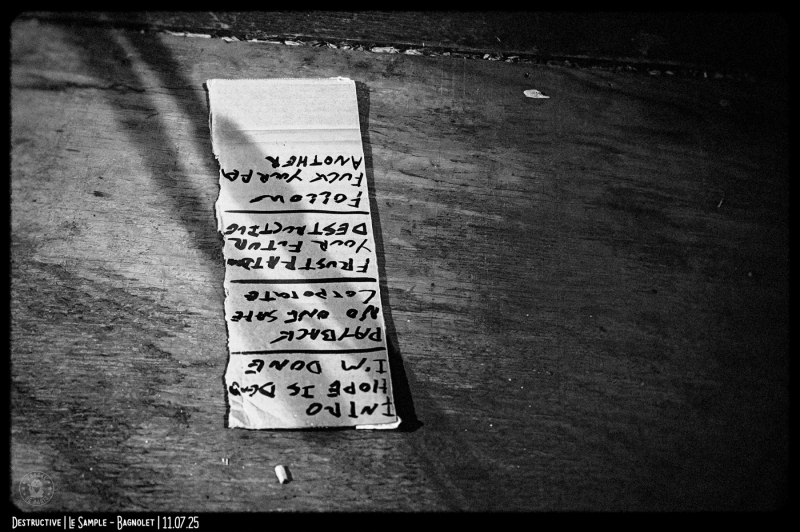 INTRO
HOPE IS DEAD
I'M DONE
PAYBACK
NO ONE SAFE
CORPORATE
FRUSTRATION
YOUR FUTUR
DESTRUCTIVE
FOLLOW
FUCK YOUR PA
ANOTHER
DESTRUCTIVE | LE SAMPLE - BAGNOLET | 11.07.25